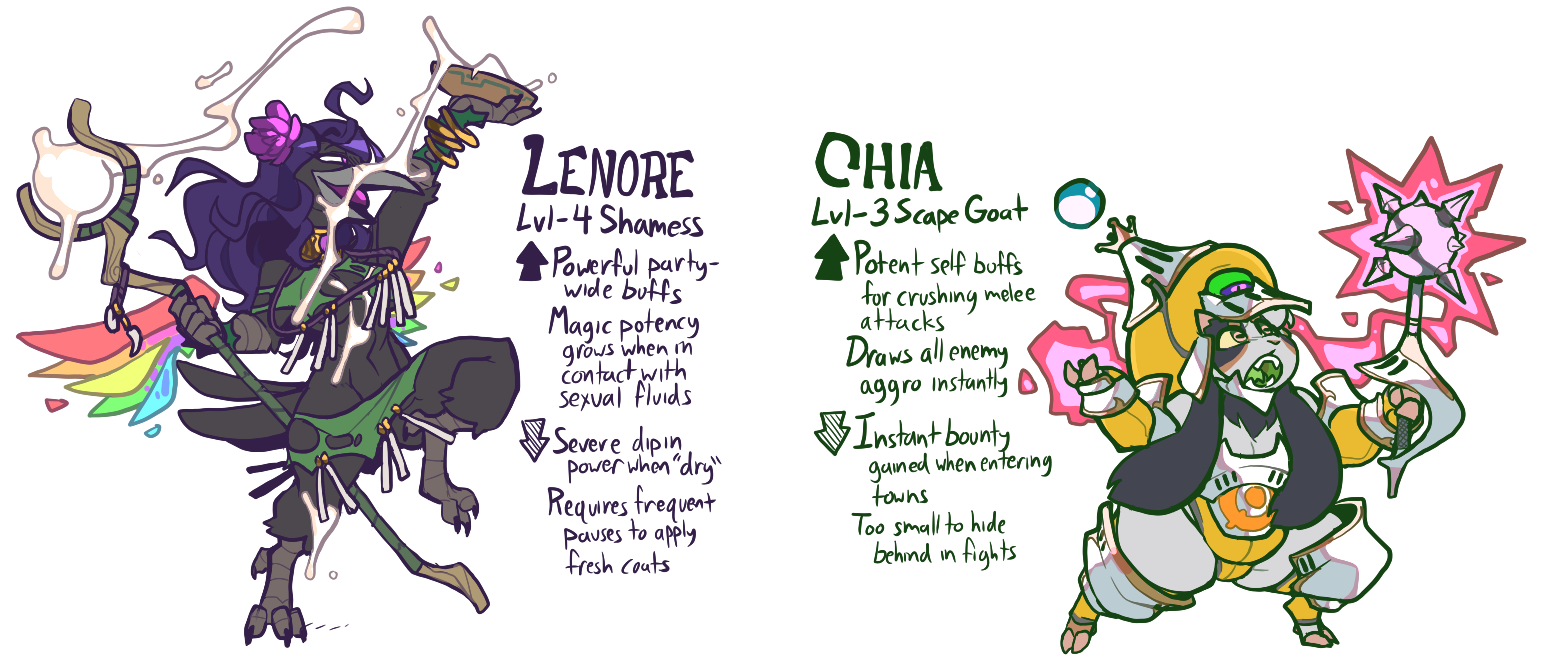 LENORE
Lvl-4 Shamess
Powerful party-
wide buffs
Magic potency
grows when in
contact with
sexual fluids
Severe dip in
power when "dry"
Requires frequent
pauses to apply
fresh coats
CHIA
Lvl-3 Scape Goat
Potent self buffs
for crushing melee
attacks
Draws all enemy
aggro instantly
Instant bounty
gained when entering
towns
Too small to hide
behind in fights